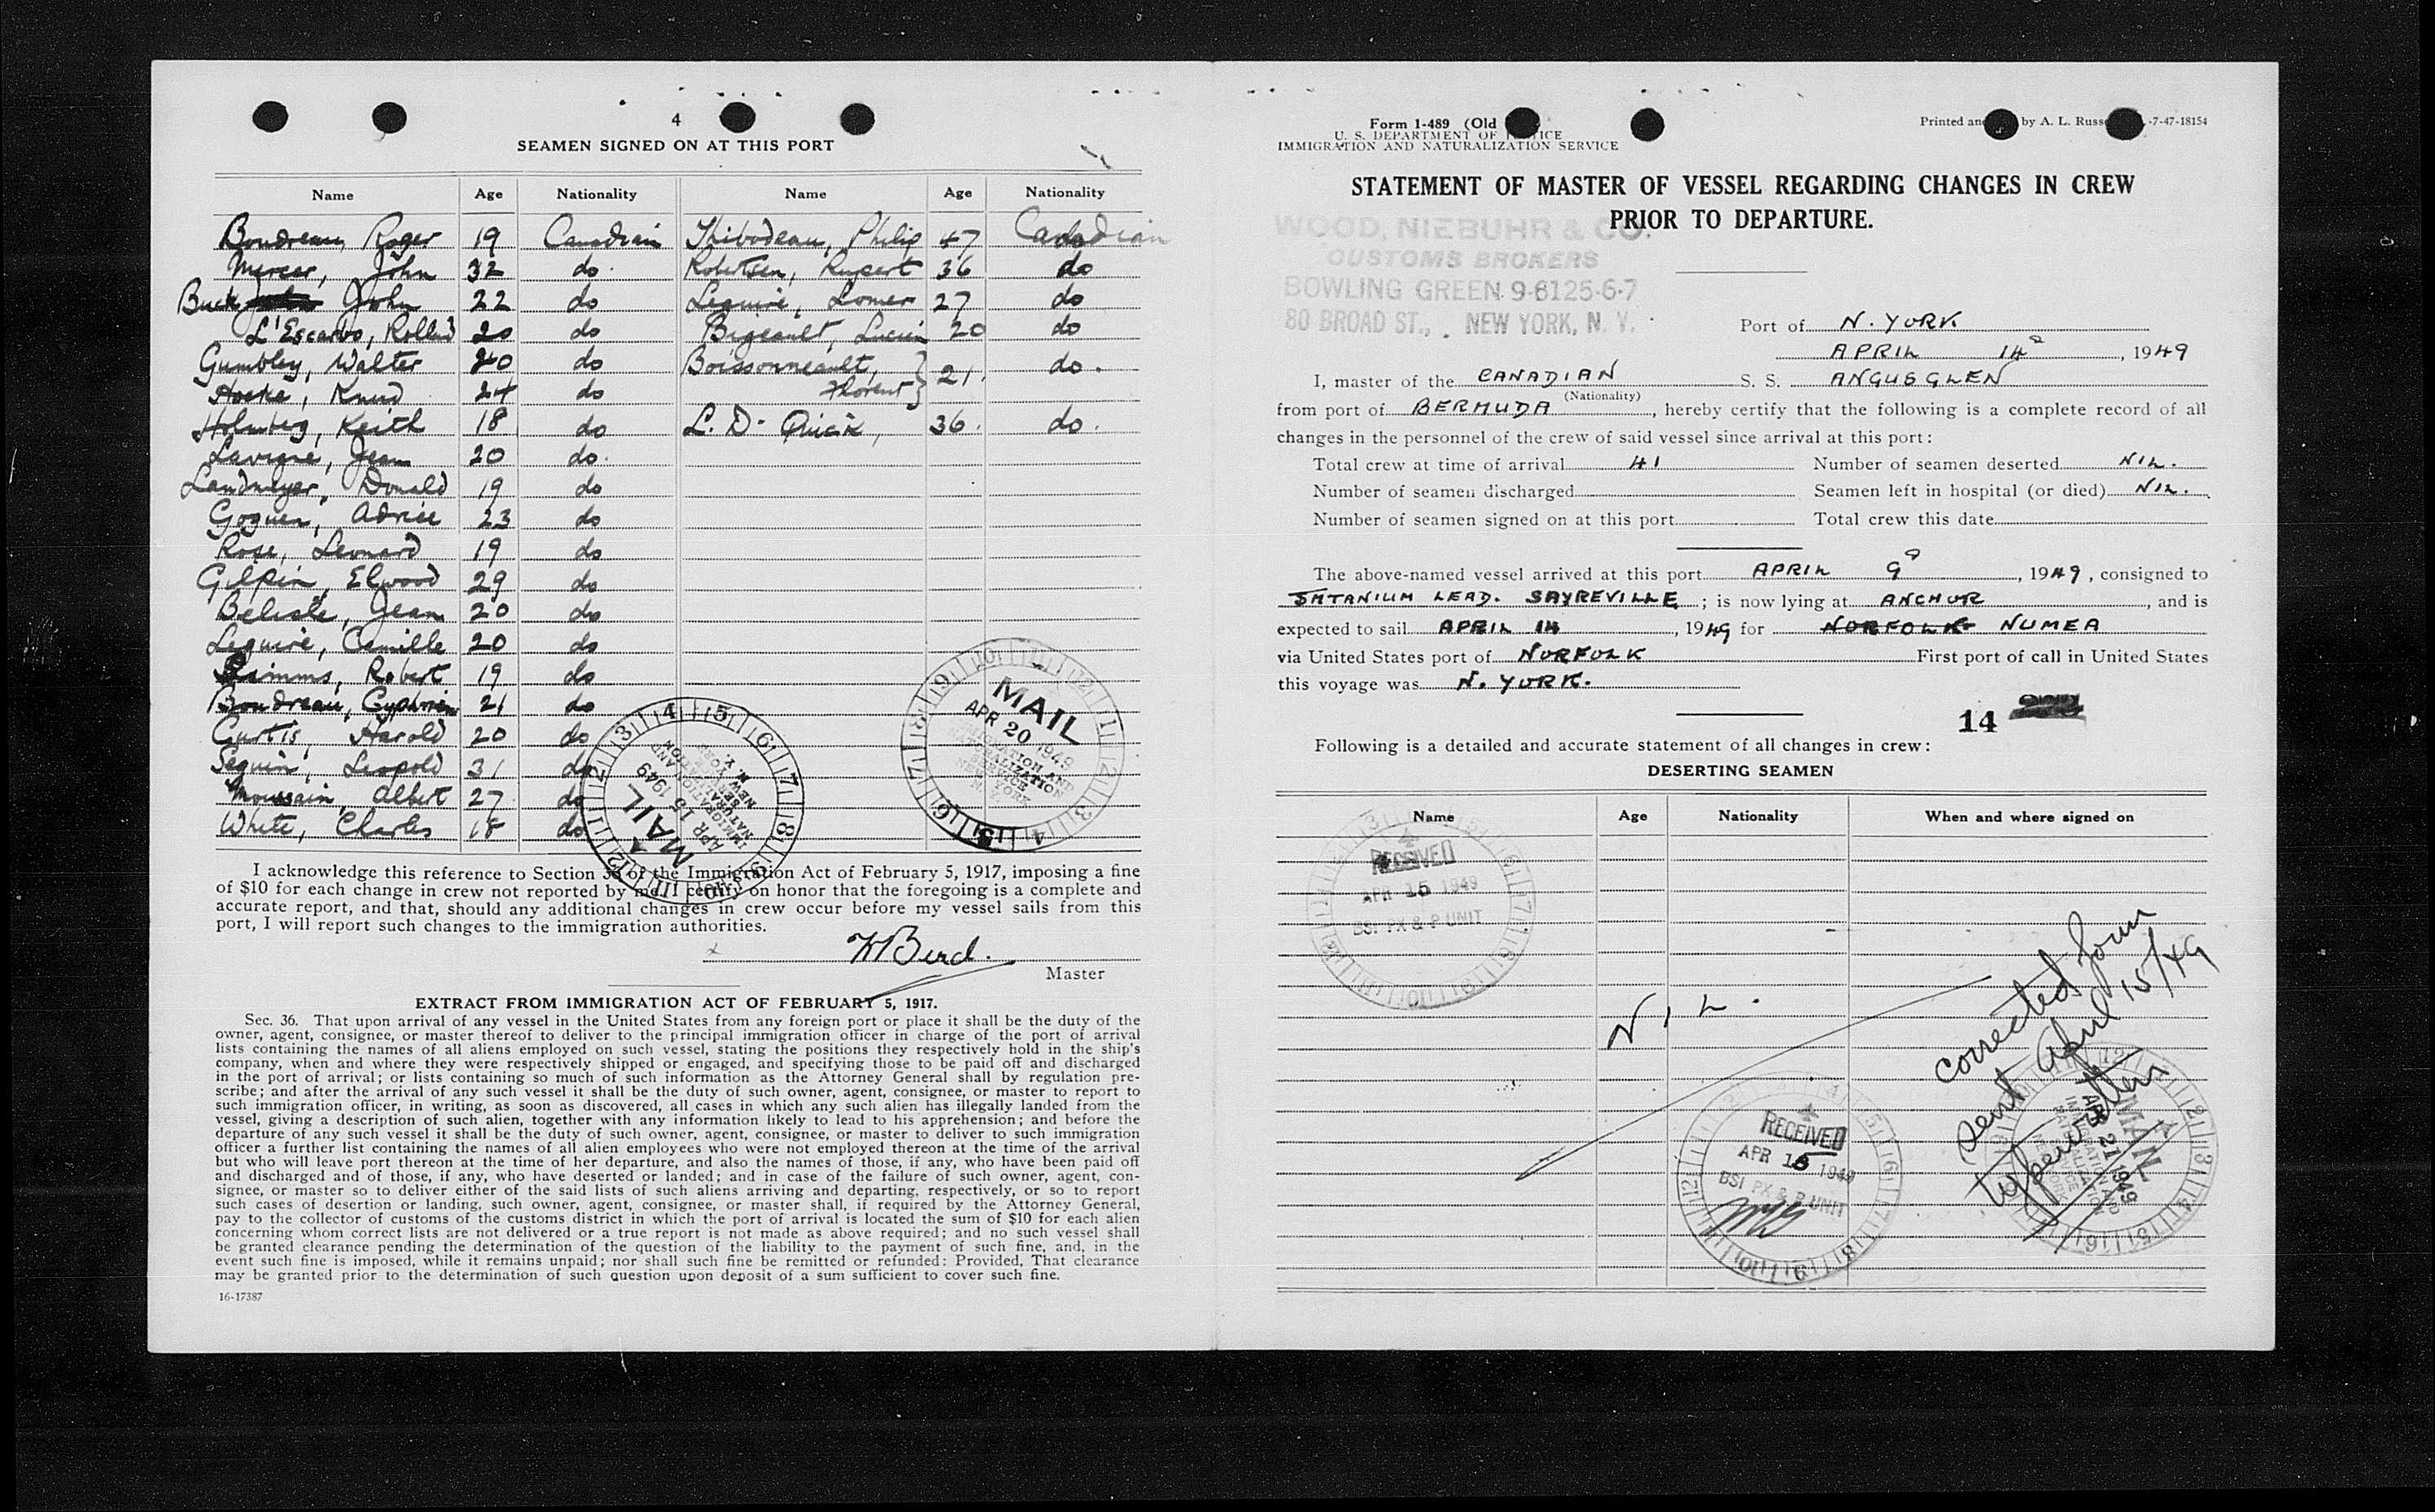 4
SEAMEN SIGNED ON AT THIS PORT
Name Age Nationality Name Age Nationality
Boudreau, Roger 19 Canadian Thibodeau, Philip 47 Canadian
Mercer, John 32 do. Robertson, Rupert 36 do
Buck John 22 do Lequire, Lomer 27 do
L'Escarbo, Rolland 20 do Bigeault, Lucien 20 do
Gumbley, Walter 20 do Boissonneault, Florent 21. do.
Knud 24 do
Holmberg, Keith 18 do L. D. Quick, 36. do.
Lavigne, Jean 20 do.
Landmeyer, Donald 19 do
Goguen, Adrice 23 do
Rose, Leonard 19 do
Gilpin, Elwood 29 do
Belisle, Jean 20 do
Lequire, Camille 20 do
Simms, Robert 19 do
Boudreau, 21 do
Curtis, Harold 20 do
Seguin, Leopold 31 do
Moussain, Albert 27 do
White, Charles 18 do
MAIL
APR 15 1949
IMMIGRATION AND
NATURALIZATION
SERVICE
NEW YORK
N. Y.
MAIL
APR 20 1949
IMMIGRATION AND
NATURALIZATION
SERVICE
NEW YORK
N. Y.
I acknowledge this reference to Section 36 of the Immigration Act of February 5, 1917, imposing a fine
of $10 for each change in crew not reported by me. I certify on honor that the foregoing is a complete and
accurate report, and that, should any additional changes in crew occur before my vessel sails from this
port, I will report such changes to the immigration authorities.
x
Master
EXTRACT FROM IMMIGRATION ACT OF FEBRUARY 5, 1917.
Sec. 36. That upon arrival of any vessel in the United States from any foreign port or place it shall be the duty of the
owner, agent, consignee, or master thereof to deliver to the principal immigration officer in charge of the port of arrival
lists containing the names of all aliens employed on such vessel, stating the positions they respectively hold in the ship's
company, when and where they were respectively shipped or engaged, and specifying those to be paid off and discharged
in the port of arrival; or lists containing so much of such information as the Attorney General shall by regulation pre-
scribe; and after the arrival of any such vessel it shall be the duty of such owner, agent, consignee, or master to report to
such immigration officer, in writing, as soon as discovered, all cases in which any such alien has illegally landed from the
vessel, giving a description of such alien, together with any information likely to lead to his apprehension; and before the
departure of any such vessel it shall be the duty of such owner, agent, consignee, or master to deliver to such immigration
officer a further list containing the names of all alien employees who were not employed thereon at the time of the arrival
but who will leave port thereon at the time of her departure, and also the names of those, if any, who have been paid off
and discharged and of those, if any, who have deserted or landed; and in case of the failure of such owner, agent, con-
signee, or master so to deliver either of the said lists of such aliens arriving and departing, respectively, or so to report
such cases of desertion or landing, such owner, agent, consignee, or master shall, if required by the Attorney General,
pay to the collector of customs of the customs district in which the port of arrival is located the sum of $10 for each alien
concerning whom correct lists are not delivered or a true report is not made as above required; and no such vessel shall
be granted clearance pending the determination of the question of the liability to the payment of such fine, and, in the
event such fine is imposed, while it remains unpaid; nor shall such fine be remitted or refunded: Provided, That clearance
may be granted prior to the determination of such question upon deposit of a sum sufficient to cover such fine.
16-17387
Form 1-489 (Old
U. S. DEPARTMENT OF JUSTICE
IMMIGRATION AND NATURALIZATION SERVICE
Printed and by A. L. Russ -7-47-18154
STATEMENT OF MASTER OF VESSEL REGARDING CHANGES IN CREW
PRIOR TO DEPARTURE.
WOOD, NIEBUHR & CO.
CUSTOMS BROKERS
BOWLING GREEN 9-6125-6-7
80 BROAD ST., NEW YORK, N. Y.
Port of N. YORK
APRIL 14, 1949
I, master of the CANADIAN S. S. ANGUSGLEN
(Nationality)
from port of BERMUDA, hereby certify that the following is a complete record of all
changes in the personnel of the crew of said vessel since arrival at this port:
Total crew at time of arrival 41 Number of seamen deserted NIL.
Number of seamen discharged Seamen left in hospital (or died) NIL.
Number of seamen signed on at this port Total crew this date
The above-named vessel arrived at this port APRIL 9, 1949, consigned to
LEAD. SAYREVILLE; is now lying at ANCHOR, and is
expected to sail APRIL 14, 1949 for NORFOLK NUMEA
via United States port of NORFOLK First port of call in United States
this voyage was N. YORK.
14
Following is a detailed and accurate statement of all changes in crew:
DESERTING SEAMEN
Name Age Nationality When and where signed on
RECEIVED
APR 15 1949
BSI PX & P UNIT
NIL.
corrected form
sent April 15/49
RECEIVED
APR 15 1949
BSI PX & P UNIT
MAIL
APR 21 1949
IMMIGRATION AND
NATURALIZATION
SERVICE
NEW YORK